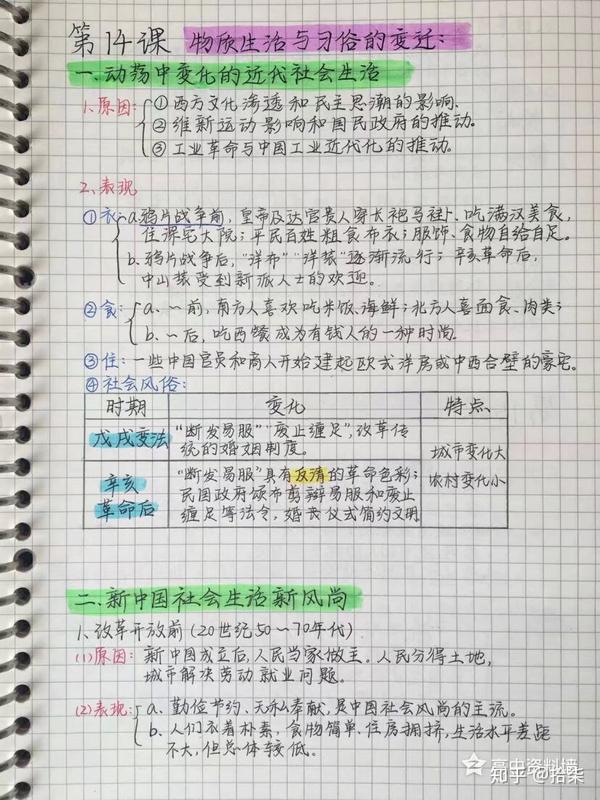 第14课 物质生活与习俗的变迁:
一.动荡中变化的近代社会生活
1.原因: ①西方文化渗透和民主思潮的影响.
②维新运动影响和国民政府的推动.
③工业革命与中国工业近代化的推动.
2.表现
①衣 a.鸦片战争前,皇帝及达官贵人穿长袍马褂、吃满汉美食,
住深宅大院;平民百姓粗食布衣;服饰、食物自给自足。
b.鸦片战争后,"洋布""洋装"逐渐流行;辛亥革命后,
中山装受到新派人士的欢迎。
②食: a、~前,南方人喜欢吃米饭、海鲜;北方人喜面食、肉类;
b、~后,吃西餐成为有钱人的一种时尚.
③住:一些中国官员和商人开始建起欧式洋房或中西合壁的豪宅。
④社会风俗:
时期 变化 特点
戊戌变法 "断发易服""废止缠足",改革传
统的婚姻制度。
城市变化大
农村变化小
辛亥
革命后
"断发易服"具有反清的革命色彩;
民国政府颁布剪辫易服和废止
缠足等法令,婚丧仪式简约文明
二.新中国社会生活新风尚
1、改革开放前(20世纪50~70年代)
(1)原因: 新中国成立后,人民当家做主。人民分得土地,
城市解决劳动就业问题。
(2)表现: a、勤俭节约、无私奉献,是中国社会风尚的主流。
b、人们衣着朴素,食物简单、住房拥挤,生活水平差距
不大,但总体较低。
高中资料墙
知乎 @拾柒